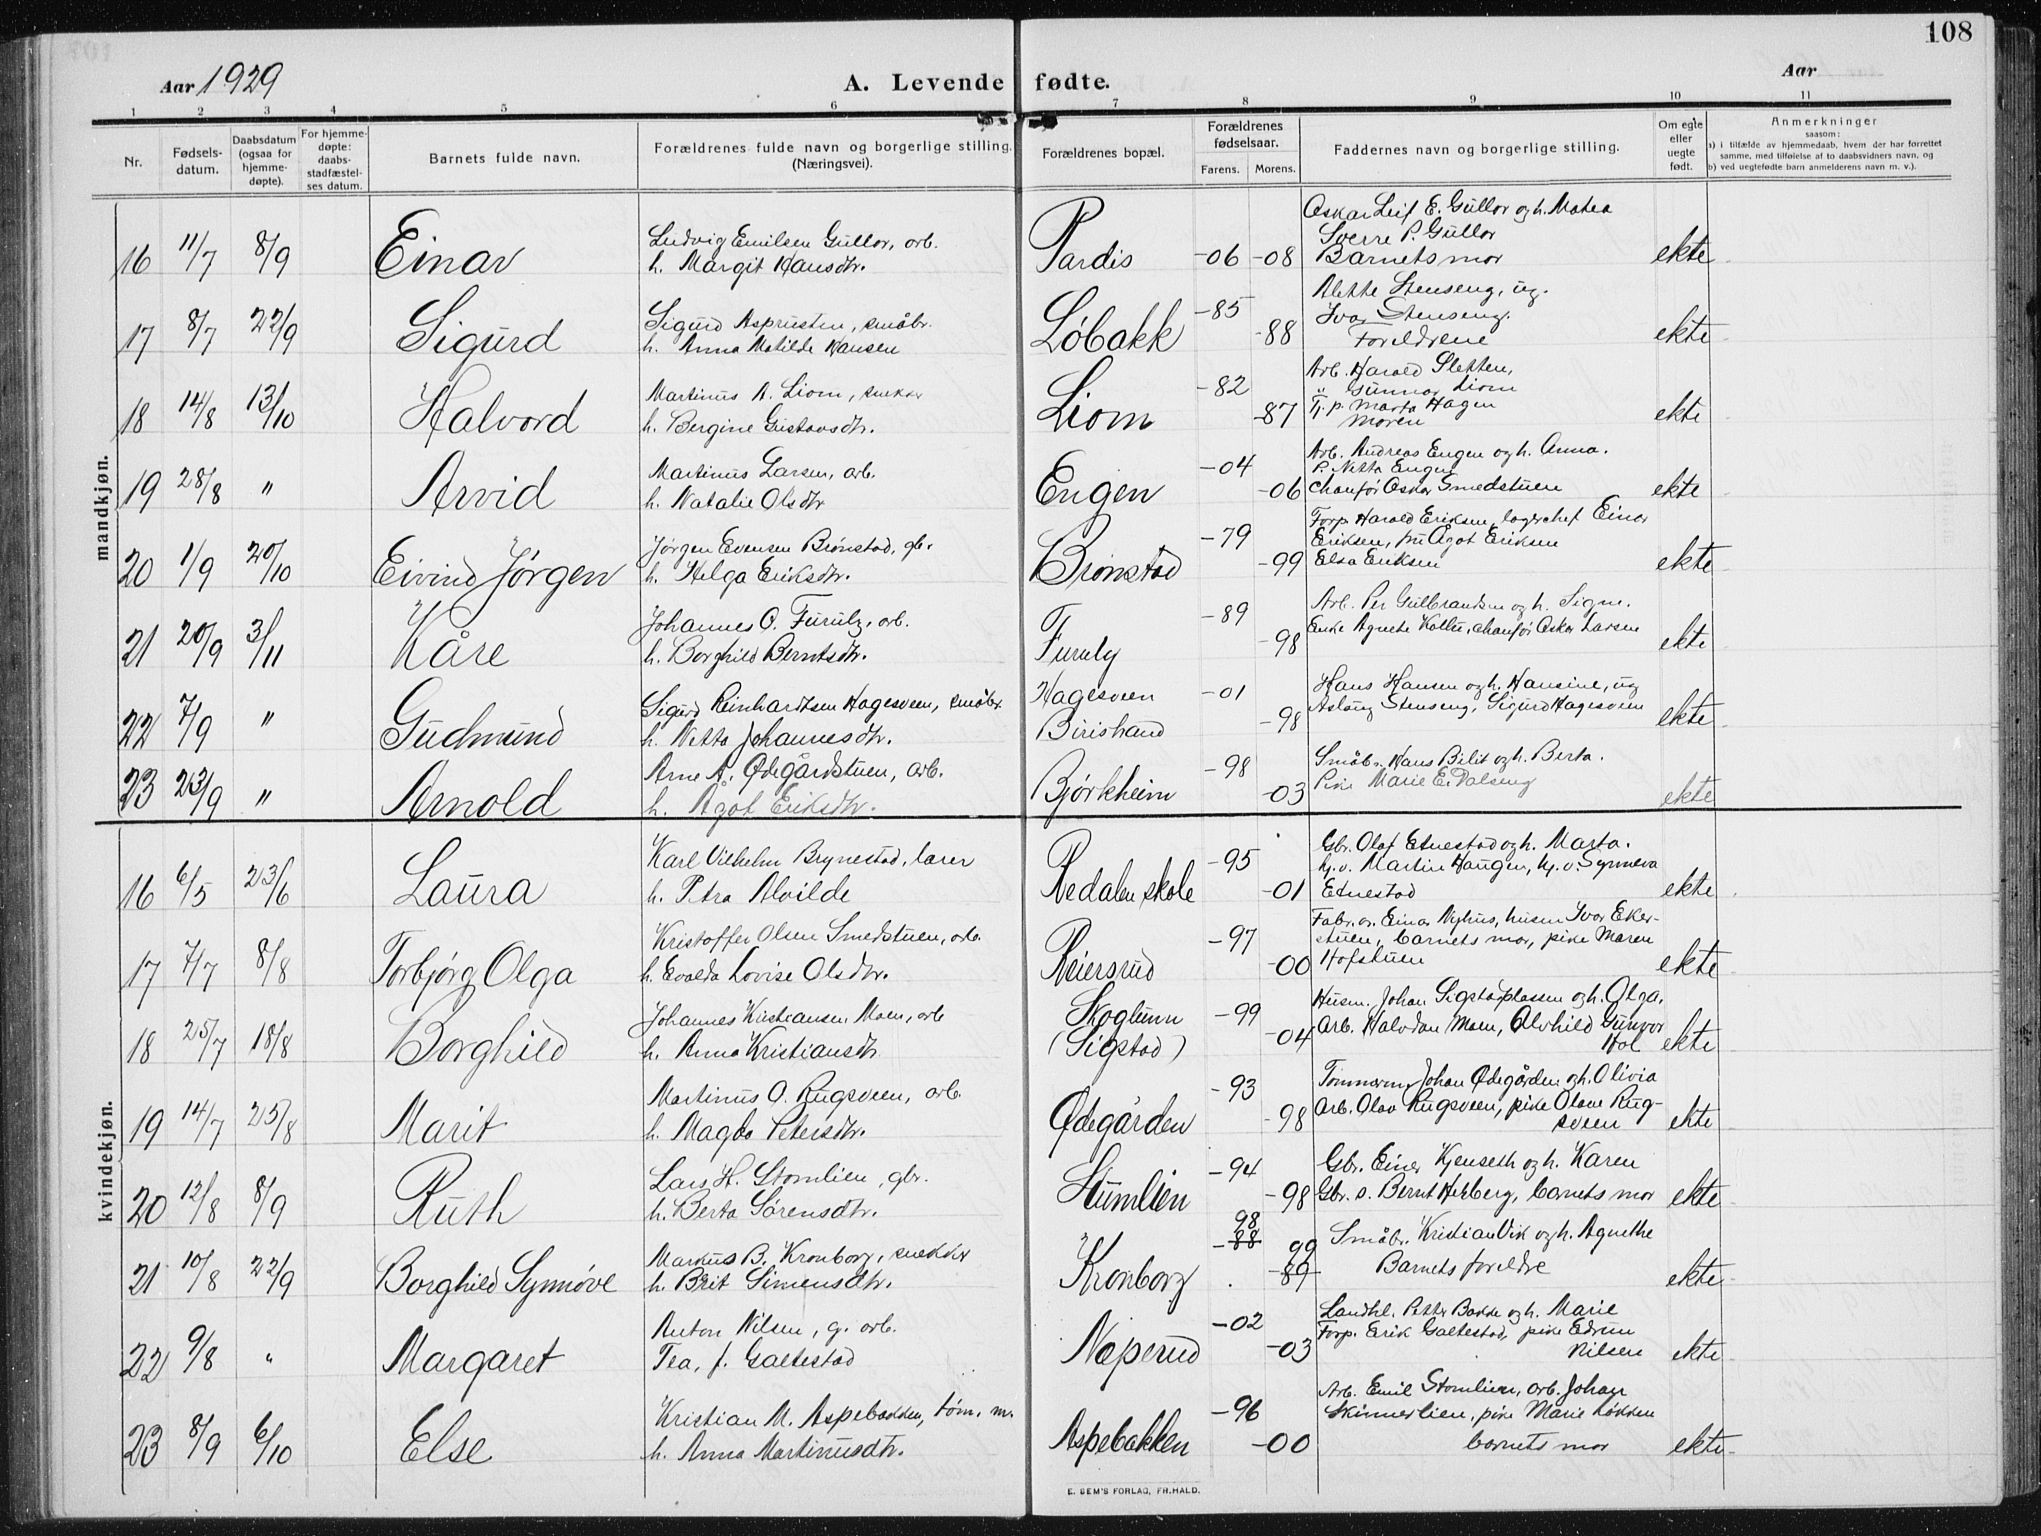 108
Aar 1929
A. Levende fødte.
Aar
1 2 3 4 5 6 7 8 9 10 11
Nr.
Fødsels-
datum.
Daabsdatum
(ogsaa for
hjemme-
døpte).
For hjemme-
døpte:
daabs-
stadfæstel-
ses datum.
Barnets fulde navn.
Forældrenes fulde navn og borgerlige stilling.
(Næringsvei).
Forældrenes bopæl.
Forældrenes
fødselsaar.
Farens. Morens.
Faddernes navn og borgerlige stilling.
Om egte
eller
uegte
født.
Anmerkninger
saasom:
a) i tilfælde av hjemmedaab, hvem der har forrettet
samme, med tilføielse af to daabsvidners navn, og
b) ved uegtefødte barn anmelderens navn m. v.).
mandkjøn.
16 11/7 8/9 Einar
Ludvig Emilsen Gullor, arb.
h. Margit Hansdtr.
Pardis -06 -08
Oskar Leif E. Gullor og h. Matea
Sverre P. Gullor
Barnets mor
ekte
17 8/7 22/9 Sigurd
Sigurd Asprusten, småbr.
h. Anna Matilde Hansen
Løbakk -85 -88
Alette Stenseng, ug.
Ivar Stenseng.
Foreldrene
ekte
18 14/8 13/10 Halvord
Martinus A. Liom, snekker
h. Bergine Gustavsdtr.
Liom -82 -87
Arb. Harald Sletten,
" Gunnar Liom
Tj. p. Marta Hagen
Moren
ekte
19 28/8 " Arvid
Martinus Larsen, arb.
h. Natalie Olsdtr
Engen -04 -06
Arb. Andreas Engen og h. Anna.
P. Netta Engen
Chauffør Oskar Smedstuen
ekte
20 1/9 20/10 Eivind Jørgen
Jørgen Evensen Brønstad, gb.
h. Helga Eriksdtr.
Brønstad -79 -99
Forp. Harald Eriksen, lagerchef Einar
Eriksen, fru Ågot Eriksen
Elsa Eriksen
ekte
21 20/9 3/11 Kåre
Johannes O. Furuly, arb.
h. Borghild Berntsdtr.
Furuly -89 -98
Arb. Per Gulbrandsen og h. Signe.
Enke Agnete Kollu, chaufør Oskar Larsen
ekte
22 7/9 " Gudmund
Sigurd Reinhardtsen Hagesveen, småbr.
h. Netta Johannesdtr.
Hagesveen
Biristrand
-01 -98
Hans Hansen og h. Hansine, ug
Aslaug Stenseng, Sigurd Hagesveen
ekte
23 23/9 " Arnold
Arne A. Ødegårdstuen, arb.
h. Ågot Eriksdtr.
Bjørkheim -98 -03
Småbr. Hans Bilit og h. Berta.
Pike Marie E. Dalseng
ekte
kvindekjøn.
16 6/5 23/6 Laura
Karl Vilhelm Brynestad, lærer
h. Petra Alvilde
Redalen skole -95 -01
Gbr. Olaf Etnestad og h. Marta.
hj.v. Martin Haugen, hj.v. Synneva
Etnestad
ekte
17 7/7 8/8 Torbjørg Olga
Kristoffer Olsen Smedstuen, arb.
h. Evalda Lovise Olsdtr.
Reiersrud -97 -00
Fabr.ar. Einar Nyhus, husm Ivar Eker-
stuen, barnets mor, pike Maren
Hofstuen
ekte
18 25/7 18/8 Borghild
Johannes Kristiansen Moen, arb
h. Anna Kristiansdtr
Skoglunn
(Sigstad)
-99 -04
Husm. Johan Sigstadplassen og h. Olga.
Arb. Halvdan Moen, Alvhild Gunvor
Hol
ekte
19 14/7 25/8 Marit
Martinus O. Rugsveen, arb.
h. Magda Petersdtr.
Ødegården -93 -98
Tømmerm. Johan Ødegården og h. Olivia
Arb. Olav Rugsveen, pike Olave Rug-
sveen
ekte
20 12/8 8/9 Ruth
Lars H. Stomlien, gbr.
h. Berta Sørensdtr.
Stumlien -94 -98
Gbr. Einar Kjenseth og h. Karen
Gbr. s. Bernt Hekberg, barnets mor
ekte
21 10/8 22/9 Borghild Synnøve
Markus B. Kronborg, snekker
h. Brit Simensdtr.
Kronborg 98 -88 99 -89
Småbr. Kristian Vik og h. Agnethe
Barnets foreldre
ekte
22 9/8 " Margaret
Anton Nilsen, g. arb.
Tea, f. Galtestad
Næperud -02 -03
Landhl. Petter Bakke og h. Marie
Forp. Erik Galtestad, pike Edrun
Nilsen
ekte
23 8/9 6/10 Else
Kristian M. Aspebakken, tøm. m.
h. Anna Martinusdtr.
Aspebakken -96 -00
Arb. Emil Stomlien, arb. Johan
Skinnerlien, pike Marie Løkken
barnets mor
ekte
E. SEM'S FORLAG, FR.HALD.